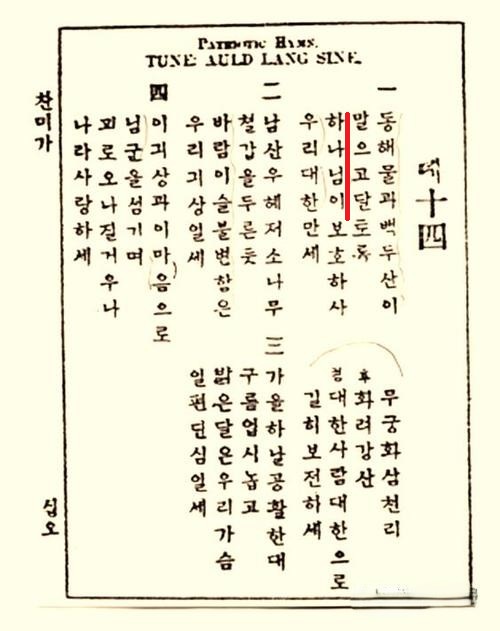 PATRIOTIC HYMN.
TUNE: AULD LANG SINE.
뎨十四
一
동해물과백두산이
말으고달토록
하나님이보호하사
우리대한만세
무궁화삼천리
화려강산
대한사람대한으로
길히보전하세
二
남산우헤저소나무
철갑을두른듯
바람이슬불변함은
우리긔상일세
三
가을하날공활한대
구름업시놉고
밝은달은우리가슴
일편단심일세
四
이긔상과이마음으로
님군을섬기며
괴로오나질거우나
나라사랑하세
찬미가
십오